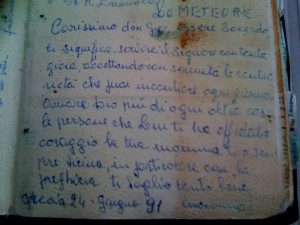 Le METEORE
Carissimo don Gio essere Sacerdo
te significa servire il Signore con tanta
gioia, accettando con serenità le contra
rietà che puoi incontrare ogni giorno.
Amare Dio più di ogni altra cosa
le persone che Lui ti ha affidato
coraggio la tua mamma ti è sem
pre vicina, in particolare con la
preghiera ti voglio tanto bene
24 - Giugno 91 mamma